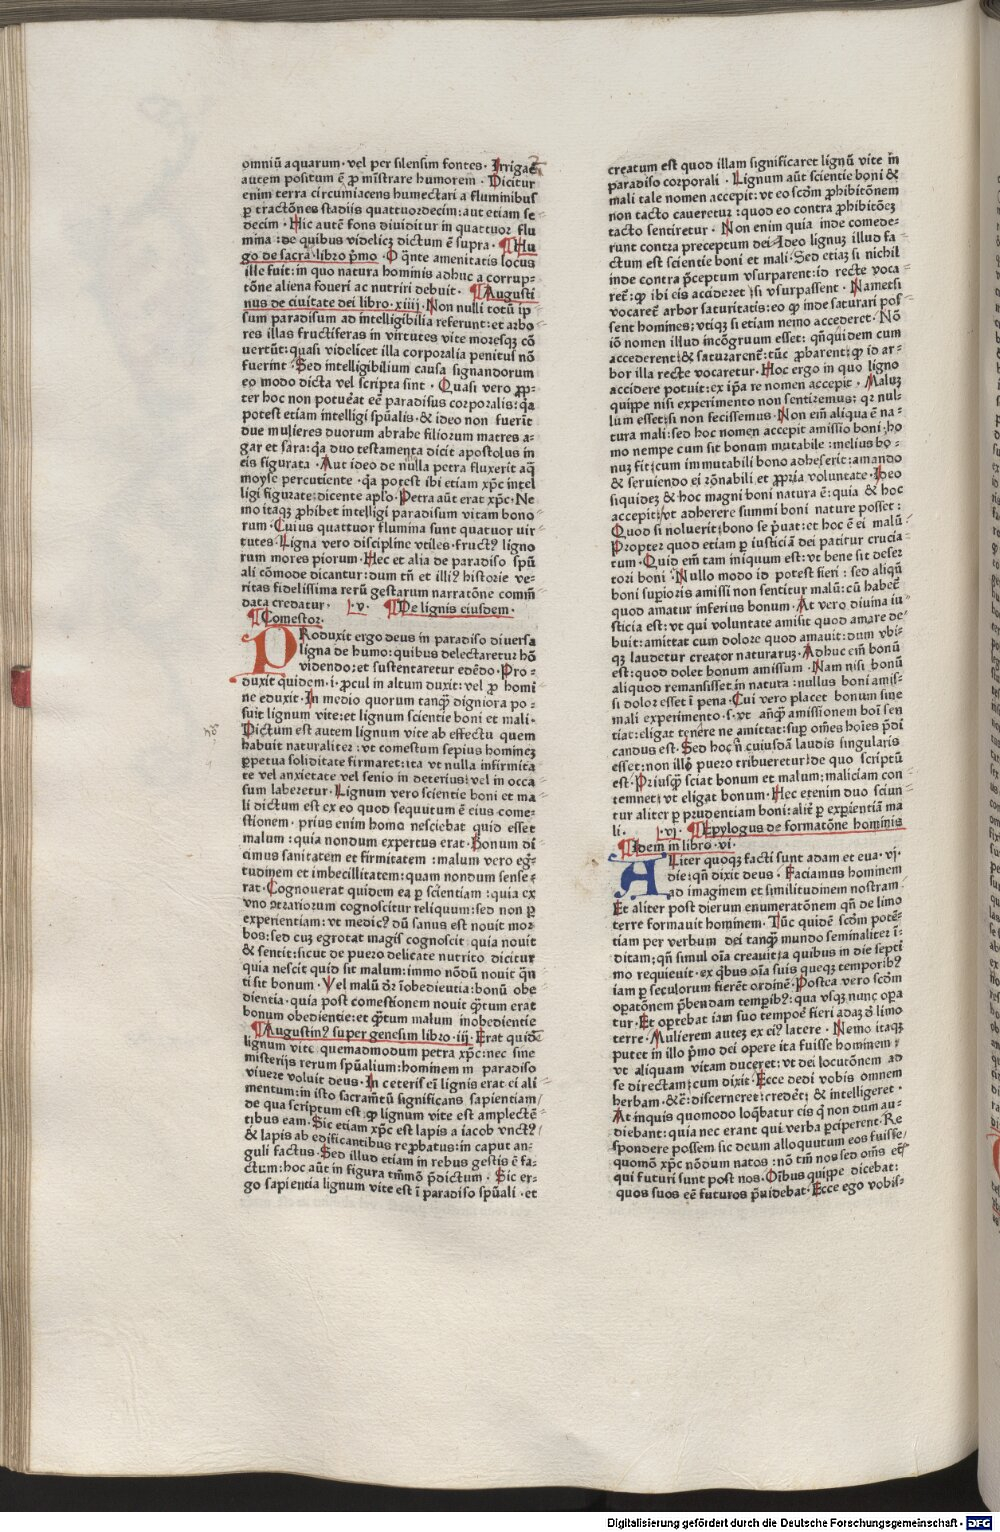 omniū aquarum· vel per silensim fontes· Irrigaē
autem positum ē ꝓ mīstrare humorem · Dicitur
enim terra circumiacens humectari a fluminibus
ꝑ tractōnes stadiis quattuordecim: aut etiam se-
decim · Hic autē fons diuiditur in quattuor flu
mina : de quibus videlicꝫ dictum ē supra · ¶ Hu
go de sacra libro pͥmo · O q̄nte amenitatis locus
ille fuit: in quo natura hominis adhuc a corrup-
tōne aliena foueri ac nutriri debuit · ¶ Augusti
nus de ciuitate dei libro·xiiij· Non nulli totū ip-
sum paradisum ad intelligibilia referunt: et arbo-
res illas fructiferas in virtutes vite moresqꝫ cō
uertūt: quasi videlicet illa corporalia penitus nō
fuerint · Sed intelligibilium causa signandorum
eo modo dicta vel scripta sint · Quasi vero ꝓp-
ter hoc non potuerat eē paradisus corporalis: q̄a
potest etiam intelligi spūalis · & ideo non fuerīt
due mulieres duorum abrahe filiorum matres a-
gar et sara: q̄a duo testamenta dicit apostolus in
eis figurata · Aut ideo de nulla petra fluxerit aq̄
moyse percutiente · q̄a potest ibi etiam xp̄c intel
ligi figurate: dicente apl̄o · Petra aūt erat xp̄c· Ne
mo itaqꝫ ꝓhibet intelligi paradisum vitam bono-
rum · Cuius quattuor flumina sunt quatuor vir-
tutes · Ligna vero discipline vtiles · fruct⁹ ligno
rum mores piorum · Hec et alia de paradiso spū
ali cōmode dicantur: dum tn̄ et illi⁹ historie ve-
ritas fidelissima rerū gestarum narratōne comm̄
data credatur · ·v· ¶ De lignis eiusdem ·
¶ Comestor·
PRoduxit ergo deus in paradiso diuersa
ligna de humo: quibus delectaretur hō
videndo: et sustentaretur edēdo · Pro-
duxit quidem · i · ꝓcul in altum duxit: vel ꝓ homi
ne eduxit · In medio quorum tanqꝫ digniora po-
suit lignum vite: et lignum scientie boni et mali·
Dictum est autem lignum vite ab effectu quem
habuit naturaliter : vt comestum sepius homineꝫ
ꝑpetua soliditate firmaret: ita vt nulla infirmita
te vel anxietate vel senio in deterius: vel in occa
sum laberetur · Lignum vero scientie boni et ma
li dictum est ex eo quod sequutum ē eius come-
stionem · prius enim homo nesciebat quid esset
malum : quia nondum expertus erat · Bonum di
cimus sanitatem et firmitatem : malum vero eg̃-
tudinem et imbecillitatem: quam nondum senser̄
rat · Cognouerat quidem ea ꝑ scientiam : quia ex
vno ↄtrariorum cognoscitur reliquum: sed non ꝑ
experientiam: vt medic⁹ dū sanus est nouit mor
bos: sed cuꝫ egrotat magis cognoscit : quia nouit
& sentit: sicut de puero delicate nutrito dicitur
quia nescit quid sit malum: immo nōdū nouit q̄n
ti sit bonum · Vel malū dr̄: īobedieutia: bonū obe
dientia · quia post comestionem nouit q̄ntum erat
bonum obedientie: et q̄ntum malum inobedientie
¶ Augustin⁹ super genesim libro·iij· Erat quidē
lignum vite quemadmodum petra xp̄c: nec sine
misterijs rerum spūalium: hominem in paradiso
viuere voluit deus · In ceteris eī lignis erat ei ali
mentum: in isto sacramētū significans sapientiam/
de qua scriptum est: ꝙ lignum vite est amplectē-
tibus eam · Sic etiam xp̄c est lapis a iacob vnct⁹/
& lapis ab edificantibus reꝓbatus: in caput an-
guli factus · Sed illud etiam in rebus gestis ē fa-
ctum: hoc aūt in figura tm̄mō p̄dictum · Sic er-
go sapientia lignum vite est ī paradiso spūali · et
creatum est quod illam significaret lignū vite in
paradiso corporali · Lignum aūt scientie boni &
mali tale nomen accepit: vt eo scd̄m ꝓhibitōnem
non tacto caueretur : quod eo contra ꝓhibitōeꝫ
tacto sentiretur · Non enim quia inde comede-
runt contra preceptum dei · Ideo lignuꝫ illud fa-
ctum est scientie boni et mali · Sed etiaꝫ si nichil
inde contra p̄ceptum vsurparent: id recte voca
ret̄: ꝙ ibi eis accideret si vsurpassent · Nametsi
vocaret̄ arbor saturitatis: eo ꝙ inde saturari pos-
sent homines; vtiqꝫ si etiam nemo accederet · Nō
iō nomen illud incōgruum esset: qn̄quidem cum
accederent: & saturarent̄: tūc ꝓbarent: ꝙ id ar-
bor illa recte vocaretur · Hoc ergo in quo ligno
accidere potuit: ex ip̄a re nomen accepit · Maluꝫ
quippe nisi experimento non sentiremus; qr nul-
lum esset: si non fecissemus · Non em̄ aliqua ē na-
tura mali: sed hoc nomen accepit amissio boni; ho
mo nempe cum sit bonum mutabile : melius bo-
nuꝫ fit: cum immutabili bono adheserit: amando
& seruiendo ei rōnabili et ꝓpria voluntate · Ideo
siquideꝫ & hoc magni boni natura ē: quia & hoc
accepit: vt adherere summi boni nature posset :
Quod si noluerit: bono se p̄uat: et hoc ē ei malū
Propter quod etiam ꝑ iusticiā dei patitur crucia-
tum · Quid em̄ tam iniquum est: vt bene sit deser
tori boni · Nullo modo id potest fieri : sed aliqn̄
boni supioris amissi non sentitur malū: cū habet̄
quod amatur inferius bonum · At vero diuina iu-
sticia est: vt qui voluntate amisit quod amare de-
buit: amittat cum dolore quod amauit: dum vbi-
qꝫ laudetur creator naturaruꝫ · Adhuc em̄ bonū
est: quod dolet bonum amissum · Nam nisi bonū
aliquod remansisset in natura : nullus boni amis-
si dolor esset ī pena · Cui vero placet bonum sine
mali experimento · s · vt anq̄ꝫ amissionem boī sen
tiat: eligat tenere ne amittat: sup om̄es hoīes p̄di
candus est · Sed hoc n̄ cuiusdā laudis singularis
esset: non illo puero tribueretur: de quo scriptū
est · Priusqꝫ sciat bonum et malum: maliciam con
temnet: vt eligat bonum · Hec etenim duo sciun-
tur aliter ꝑ prudentiam boni: aliter̄ ꝑ exꝑientiā ma
li · ·vj· ¶ Epylogus de formatōne hominis
¶ Idem in libro·vi·
ALiter quoqꝫ facti sunt adam et eua · vj·
die: qn̄ dixit deus · Faciamus hominem
ad imaginem et similitudinem nostram
Et aliter post dierum enumeratōnem qn̄ de limo
terre formauit hominem · Tūc quidē scd̄m potē-
tiam per verbum dei tanqꝫ mundo seminaliter ī-
ditam; qn̄ simul oīa creauit: a quibus in die septi
mo requieuit · ex qͥbus oīa suis queqꝫ temporib⁹
iam ꝑ seculorum fierēt ordinē · Postea vero scd̄m
oꝑatōnem p̄bendam temꝑib⁹: qua vsqꝫ nunc oꝑa
tur · Et oꝑtebat iam suo tempoē fieri adaꝫ de limo
terre · Mulierem auteꝫ ex ei⁹ latere · Nemo itaqꝫ
putet in illo pͥmo dei opere ita fuisse hominem :
vt aliquam vitam duceret: vt dei locutōnem ad
se directam: cum dixit · Ecce dedi vobis omnem
herbam · & c̄: discerneret: credēt: & intelligeret ·
At inquis quomodo loqͣbatur eis qͥ non dum au-
diebant: quia nec erant qui verba ꝑciperent · Re
spondere possem sic deum alloquutum eos fuisse/
quomō xp̄c nōdum natos : nō tm̄ nos sed om̄s et̄
qui futuri sunt post nos · Oībus quippe dicebat:
quos suos eē futuros p̄uidebat · Ecce ego vobis-
Digitalisierung gefördert durch die Deutsche Forschungsgemeinschaft · DFG